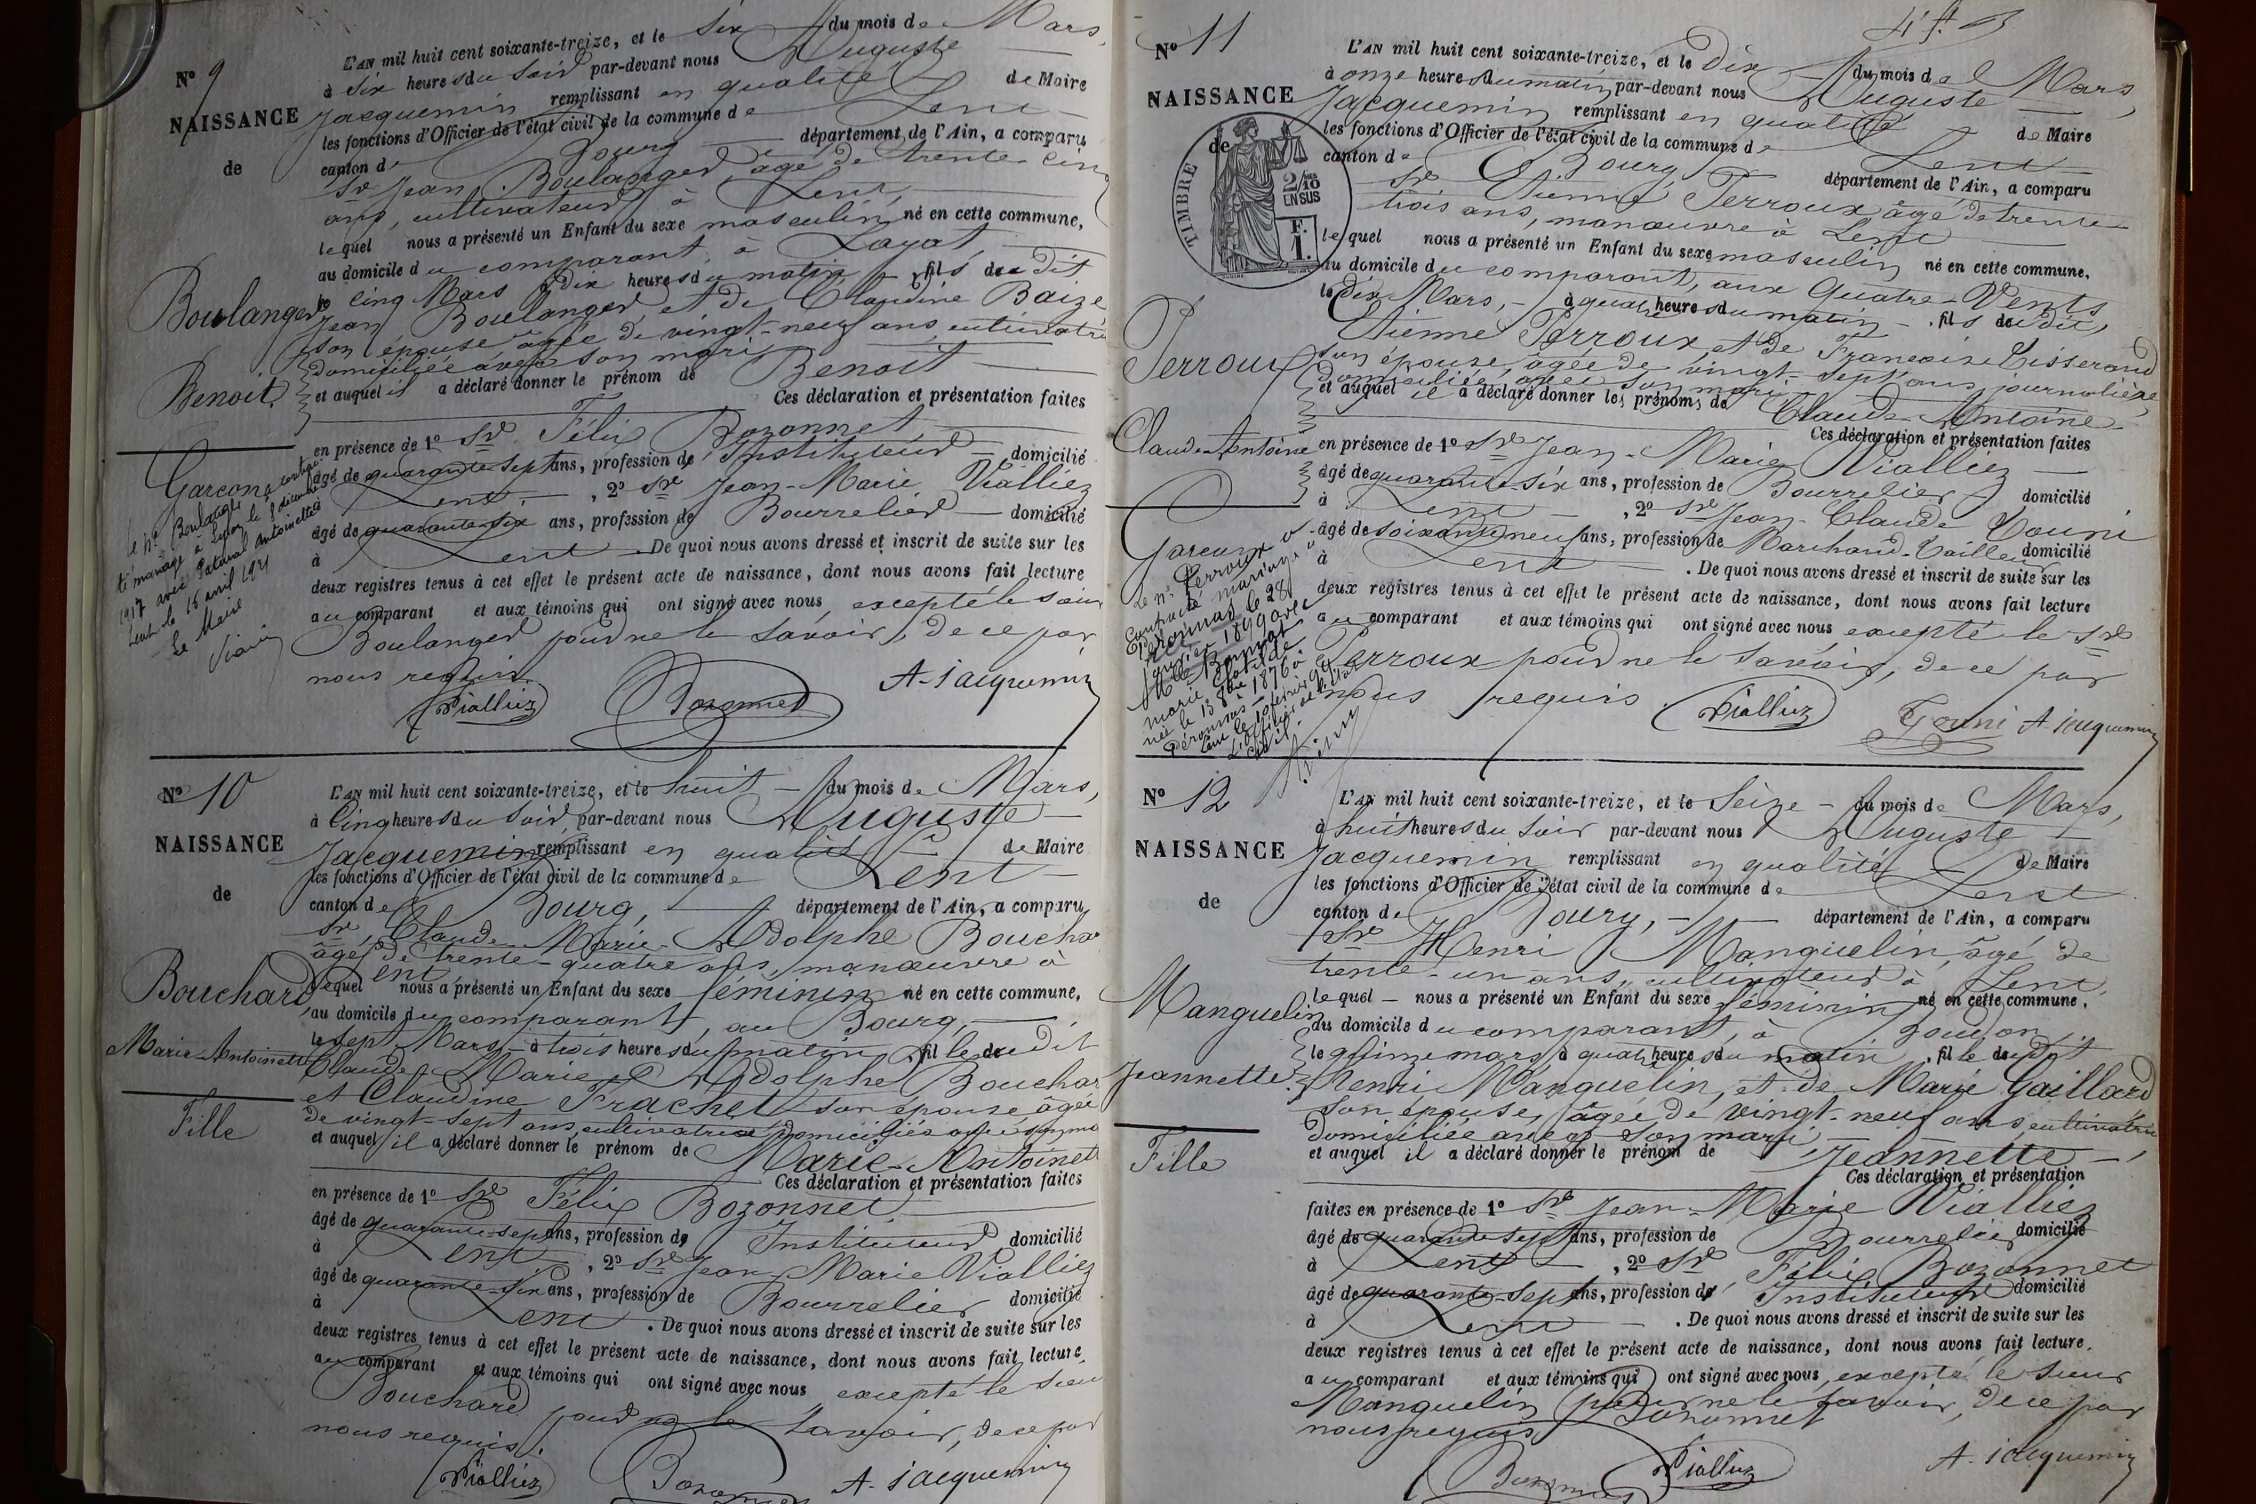 Nº 9
NAISSANCE
de
Boulanger
Benoit
Garçon
L'AN mil huit cent soixante-treize, et le six du mois de Mars,
à six heures du soir par-devant nous Auguste
Jacquemin remplissant en qualité de Maire
les fonctions d'Officier de l'état civil de la commune de Lent
canton de Bourg département de l'Ain, a comparu
Sr Jean Boulanger, âgé de trente-cinq
ans, cultivateur à Lent,
lequel nous a présenté un Enfant du sexe masculin né en cette commune,
au domicile du comparant, à Layat,
le cinq Mars à dix heures du matin, fils du dit
Jean Boulanger, et de Claudine Baize
son épouse âgée de vingt-neuf ans, cultivatrice
domiciliée avec son mari
et auquel il a déclaré donner le prénom de Benoit
Ces déclaration et présentation faites
en présence de 1º Sr Félix Bozonnet
âgé de quarante-sept ans, profession de Instituteur domicilié
Lent, 2º Sr Jean-Marie Vialliez
âgé de quarante-six ans, profession de Bourrelier domicilié
à Lent. De quoi nous avons dressé et inscrit de suite sur les
deux registres tenus à cet effet le présent acte de naissance, dont nous avons fait lecture
au comparant et aux témoins qui ont signé avec nous, excepté le sieur
Boulanger pour ne le savoir, de ce par
nous requis.
Vialliez Bozonnet A. Jacquemin
le né Boulanger a contrac
té mariage à Lyon le 8 décembre
1917 avec Antoinette
Lent le 16 avril 1921
Le Maire
Nº 10
NAISSANCE
de
Bouchard
Marie-Antoinette
Fille
L'AN mil huit cent soixante-treize, et le huit du mois de Mars,
à Cinq heures du soir, par-devant nous Auguste
Jacquemin remplissant en qualité de Maire
les fonctions d'Officier de l'état civil de la commune de Lent
canton de Bourg, département de l'Ain, a comparu
Sr Claude-Marie-Adolphe Bouchard
âgé de trente-quatre ans, manœuvre à
Lent,
lequel nous a présenté un Enfant du sexe féminin né en cette commune,
au domicile du comparant, au Bourg,
le sept Mars à trois heures du matin fille du dit
Claude-Marie-Adolphe Bouchard
et Claudine Frachet son épouse âgée
de vingt-sept ans, cultivatrice domiciliés
et auquel il a déclaré donner le prénom de Marie-Antoinette
Ces déclaration et présentation faites
en présence de 1º Sr Félix Bozonnet
âgé de quarante-sept ans, profession de Instituteur domicilié
à Lent, 2º Sr Jean-Marie Vialliez
âgé de quarante-six ans, profession de Bourrelier domicilié
à Lent. De quoi nous avons dressé et inscrit de suite sur les
deux registres tenus à cet effet le présent acte de naissance, dont nous avons fait lecture,
au comparant et aux témoins qui ont signé avec nous excepté le sieur
Bouchard pour ne le savoir, de ce par
nous requis.
Vialliez Bozonnet A. Jacquemin
Nº 11
NAISSANCE
de
TIMBRE
2/10 EN SUS
F. 1.
Perroux
Claude-Antoine
Garçon
L'AN mil huit cent soixante-treize, et le Dix du mois de Mars,
à onze heures du matin, par-devant nous Auguste
Jacquemin remplissant en qualité de Maire
les fonctions d'Officier de l'état civil de la commune de Lent
canton de Bourg département de l'Ain, a comparu
Sr Etienne Perroux âgé de trente-
trois ans, manœuvre à Lent
lequel nous a présenté un Enfant du sexe masculin né en cette commune,
au domicile du comparant, aux Quatre-Vents
le dix Mars, à quatre heures du matin, fils du dit
Etienne Perroux et de Françoise Tisserand
son épouse, âgée de vingt-sept ans, journalière,
domiciliée avec son mari
et auquel il a déclaré donner les prénoms de Claude-Antoine
Ces déclaration et présentation faites
en présence de 1º Sr Jean-Marie Vialliez
âgé de quarante-six ans, profession de Bourrelier domicilié
à Lent, 2º Sr Jean-Claude Touni
âgé de soixante-neuf ans, profession de Marchand-Tailleur domicilié
à Lent. De quoi nous avons dressé et inscrit de suite sur les
deux registres tenus à cet effet le présent acte de naissance, dont nous avons fait lecture
au comparant et aux témoins qui ont signé avec nous excepté le Sr
Perroux pour ne le savoir, de ce par
nous requis.
Vialliez Touni A. Jacquemin
Le né Perroux a
contracté mariage à
Péronnas le 28
janvier 1899 avec
Marie Clotilde
née le 13 1876 à
Péronnas
L'officier de l'état
civil
Nº 12
NAISSANCE
de
Manguelin
Jeannette
Fille
L'AN mil huit cent soixante-treize, et le Seize du mois de Mars,
à huit heures du soir par-devant nous Auguste
Jacquemin remplissant en qualité de Maire
les fonctions d'Officier de l'état civil de la commune de Lent
canton de Bourg, département de l'Ain, a comparu
Sr Henri Manguelin, âgé de
trente-un ans, cultivateur à Lent,
lequel nous a présenté un Enfant du sexe féminin né en cette commune,
au domicile du comparant, à
le quinze mars à quatre heures du matin, fille du dit
Henri Manguelin, et de Marie Gaillard
son épouse, âgée de vingt-neuf ans, cultivatrice
domiciliée avec son mari,
et auquel il a déclaré donner le prénom de Jeannette,
Ces déclaration et présentation
faites en présence de 1º Sr Jean-Marie Vialliez
âgé de quarante-sept ans, profession de Bourrelier domicilié
à Lent, 2º Sr Félix Bozonnet
âgé de quarante-sept ans, profession de Instituteur domicilié
à Lent. De quoi nous avons dressé et inscrit de suite sur les
deux registres tenus à cet effet le présent acte de naissance, dont nous avons fait lecture,
au comparant et aux témoins qui ont signé avec nous, excepté le sieur
Manguelin pour ne le savoir, de ce par
nous requis
Bozonnet
Bozonnet Vialliez A. Jacquemin